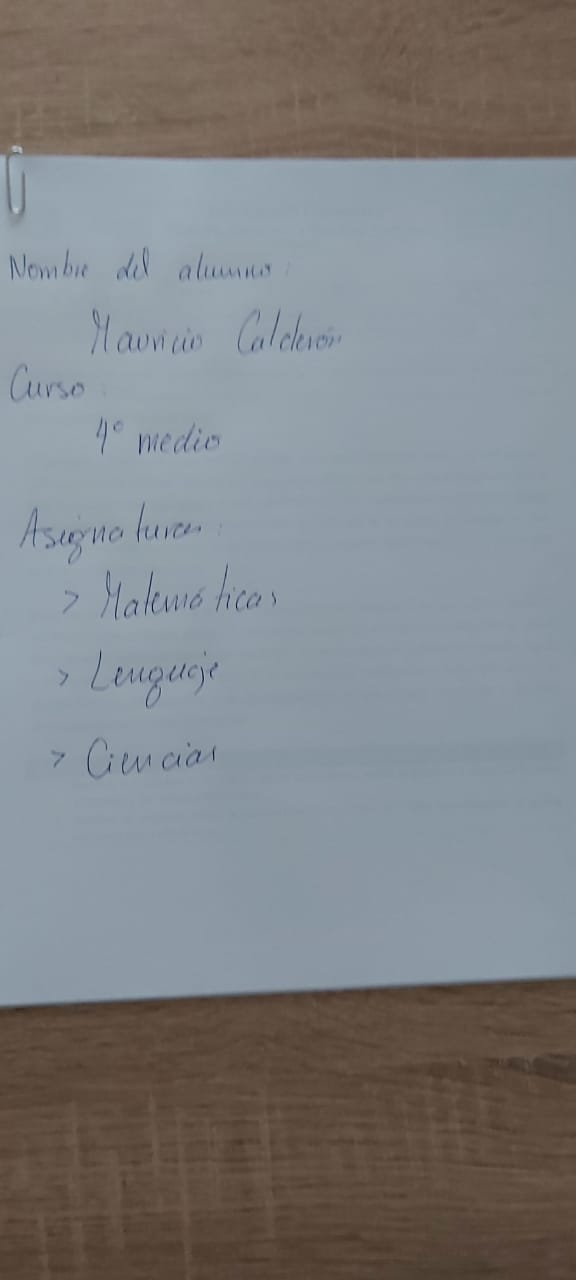 Nombre del alumno:
Mauricio Calderón
Curso:
4° medio
Asignaturas:
> Matemáticas
> Lenguaje
> Ciencias